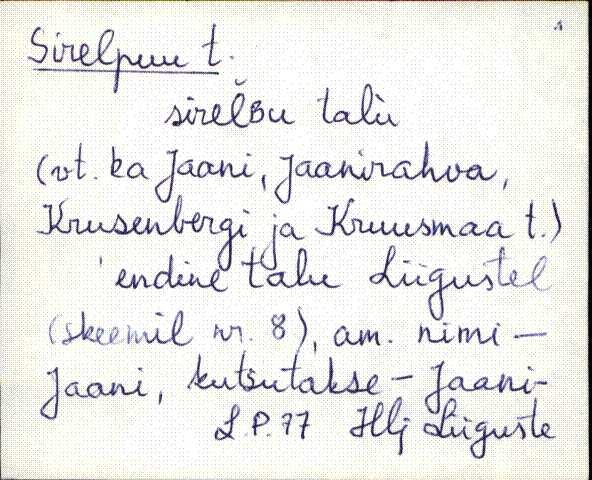 Sirelpuu t.
sirelʙu talù
(vt. ka Jaani, Jaanirahva,
Krusenbergi ja Kruusmaa t.)
endine talu Liigustel
(skeemil nr. 8), am. nimi —
Jaani, kutsutakse — Jaani-
L.P. 77 Hlj Liiguste